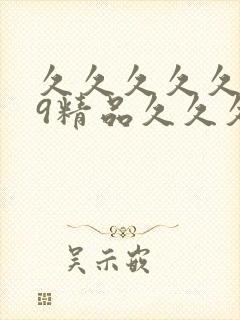 久久久久久
9精品久久久
吴示嵌